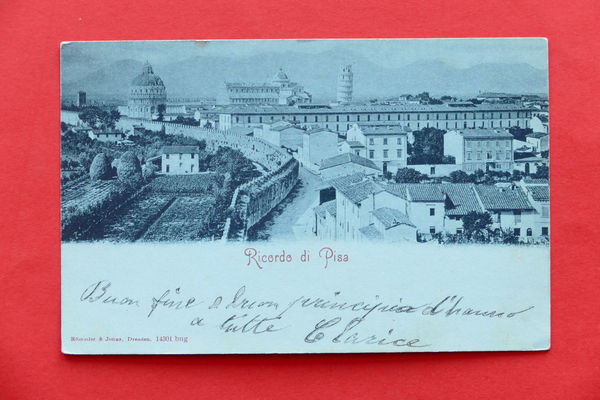 Ricordo di Pisa
Buon fine e buon principio d'hanno
a tutte Clarice
Römmler & Jonas, Dresden. 14301 bug